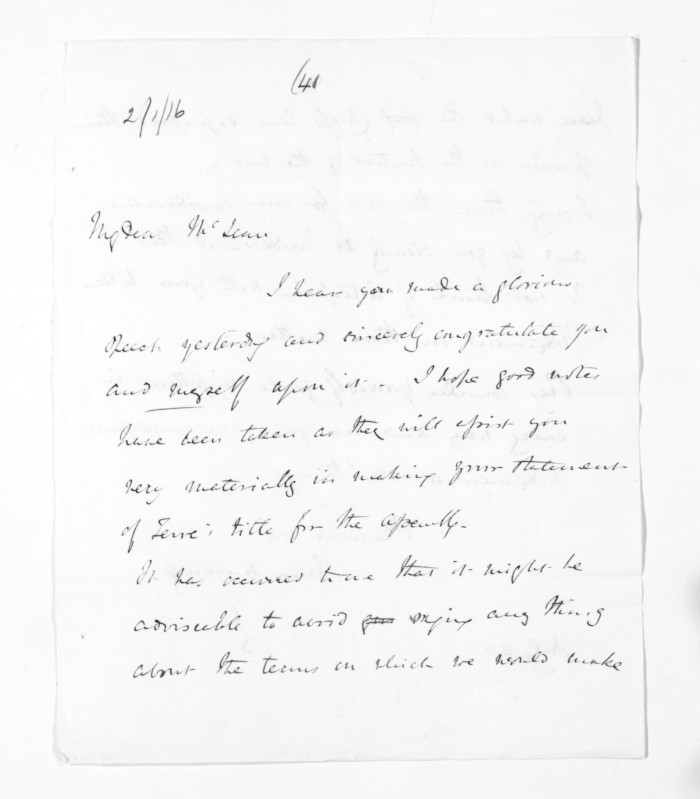 (41
2/1/16
My dear McLean
I hear you made a glorious
speech yesterday and sincerely congratulate you
and myself upon it - I hope good notes
have been taken as they will assist you
very materially in making your statement
of Teira's title for the assembly.
It has occurred to me that it might be
adviseable to avoid saying any thing
about the terms on which we would make